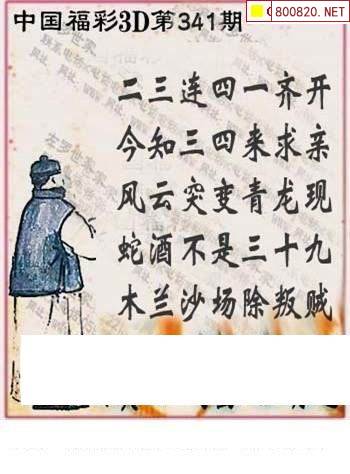 中国福彩3D第341期
800820.NET
二三连四一齐开
今知三四来求亲
风云突变青龙现
蛇酒不是三十九
木兰沙场除叛贼